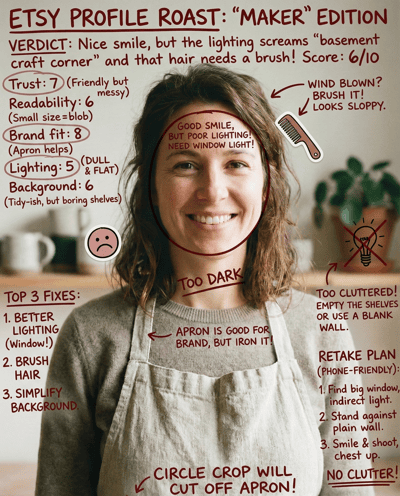 ETSY PROFILE ROAST: "MAKER" EDITION
VERDICT: Nice smile, but the lighting screams "basement
craft corner" and that hair needs a brush! Score: 6/10
Trust: 7 (Friendly but
messy)
Readability: 6
(Small size=blob)
Brand fit: 8
(Apron helps)
Lighting: 5 (DULL
& FLAT)
Background: 6
(Tidy-ish, but boring shelves)
WIND BLOWN?
BRUSH IT!
LOOKS SLOPPY.
GOOD SMILE,
BUT POOR LIGHTING!
NEED WINDOW LIGHT!
TOO DARK
TOO CLUTTERED!
EMPTY THE SHELVES
OR USE A BLANK
WALL.
TOP 3 FIXES:
1. BETTER
LIGHTING
(Window!)
2. BRUSH
HAIR
3. SIMPLIFY
BACKGROUND.
APRON IS GOOD FOR
BRAND, BUT IRON IT!
RETAKE PLAN
(PHONE-FRIENDLY):
1. Find big window,
indirect light.
2. Stand against
plain wall.
3. Smile & shoot,
chest up.
NO CLUTTER!
CIRCLE CROP WILL
CUT OFF APRON!